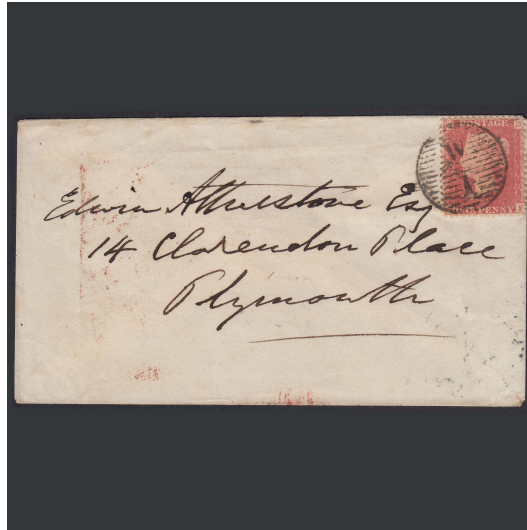 POSTAGE
ONE PENNY
Edwin Atherstone Esq
14 Clarendon Place
Plymouth